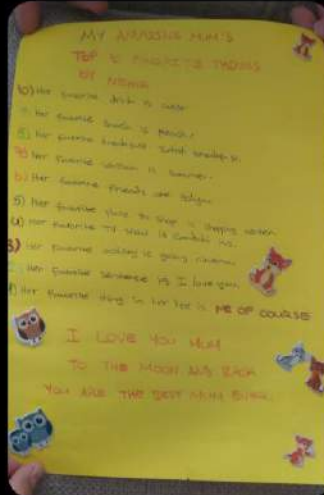 MY AMAZING MUM'S
TOP 10 FAVORITE THINGS
BY
10) Her favorite drink is
9) Her favorite snack is
8) Her favorite breakfast
7) Her favorite season is summer.
6) Her favorite friends are
5) Her favorite place to shop is shopping center
4) Her favorite TV show is
3) Her favorite outing is going cinema
2) Her favorite sentence is I love you
1) Her favorite thing in her life is ME OF COURSE
I LOVE YOU MUM
TO THE MOON AND BACK
YOU ARE THE BEST MUM EVER